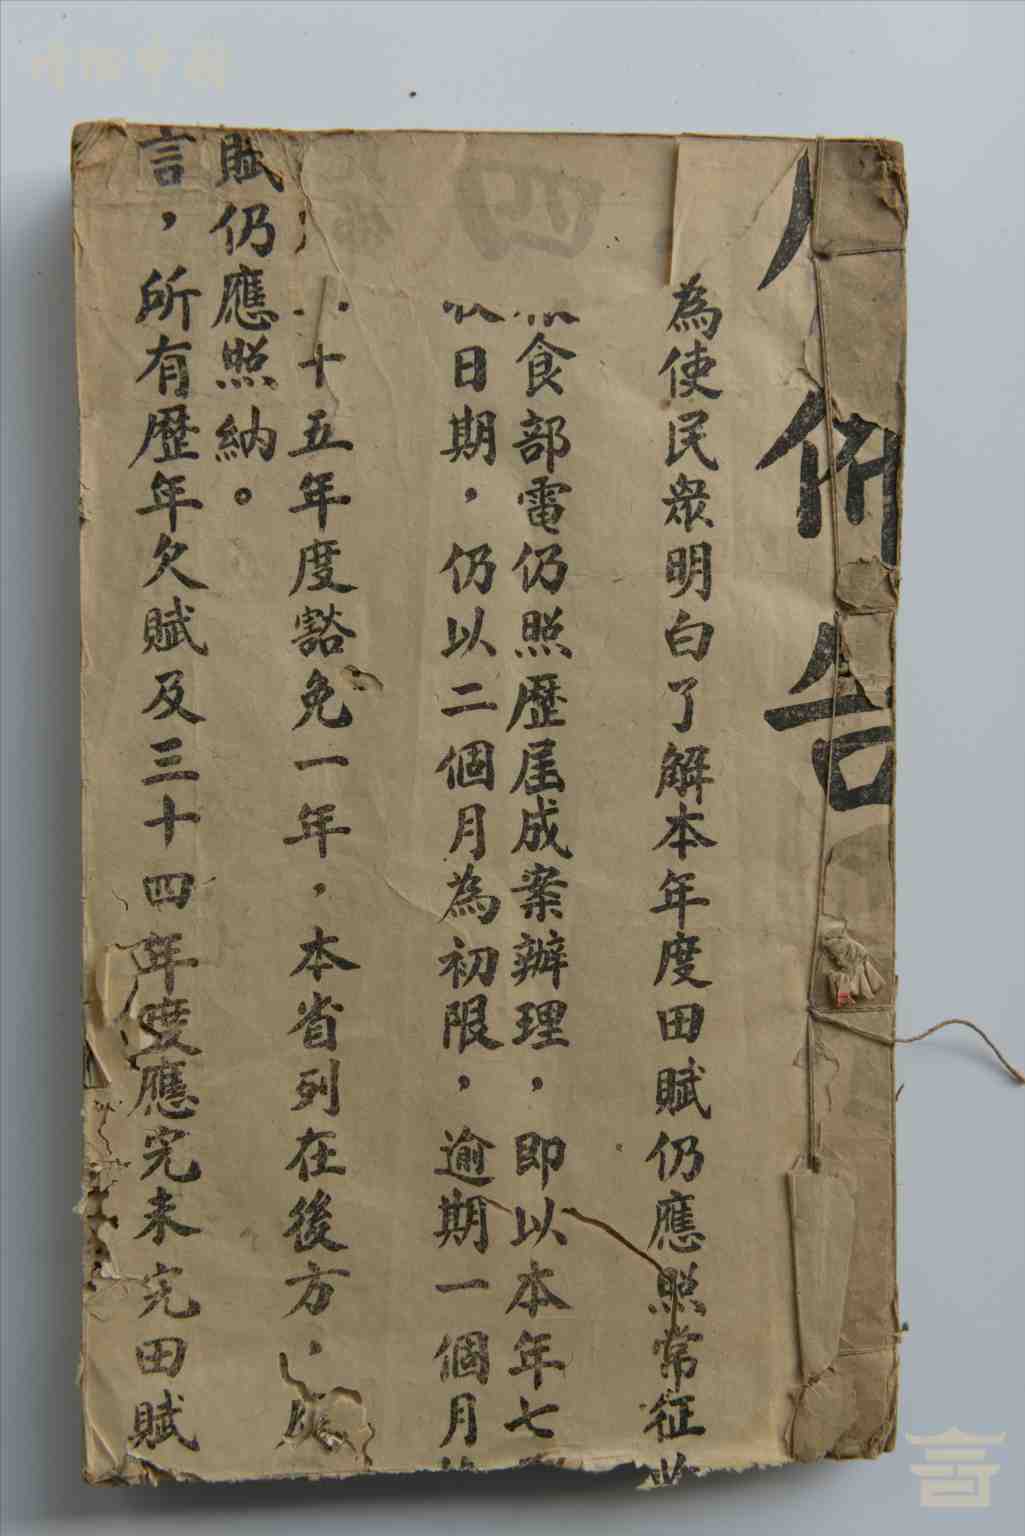 佈告
為使民眾明白了解本年度田賦仍應照常征收
食部電仍照歷屆成案辦理，即以本年七
日期，仍以二個月為初限，逾期一個月
十五年度豁免一年，本省列在後方，應
賦仍應照納。
言，所有歷年欠賦及三十四年度應完未完田賦
四